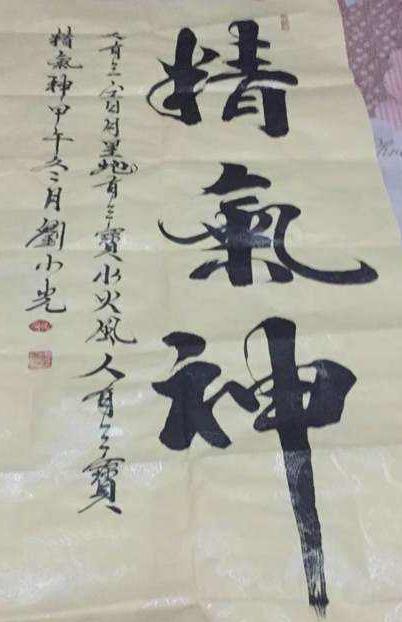 精氣神
天有三寶日月星地有三寶水火風人有三寶
精氣神甲午冬二月劉小光